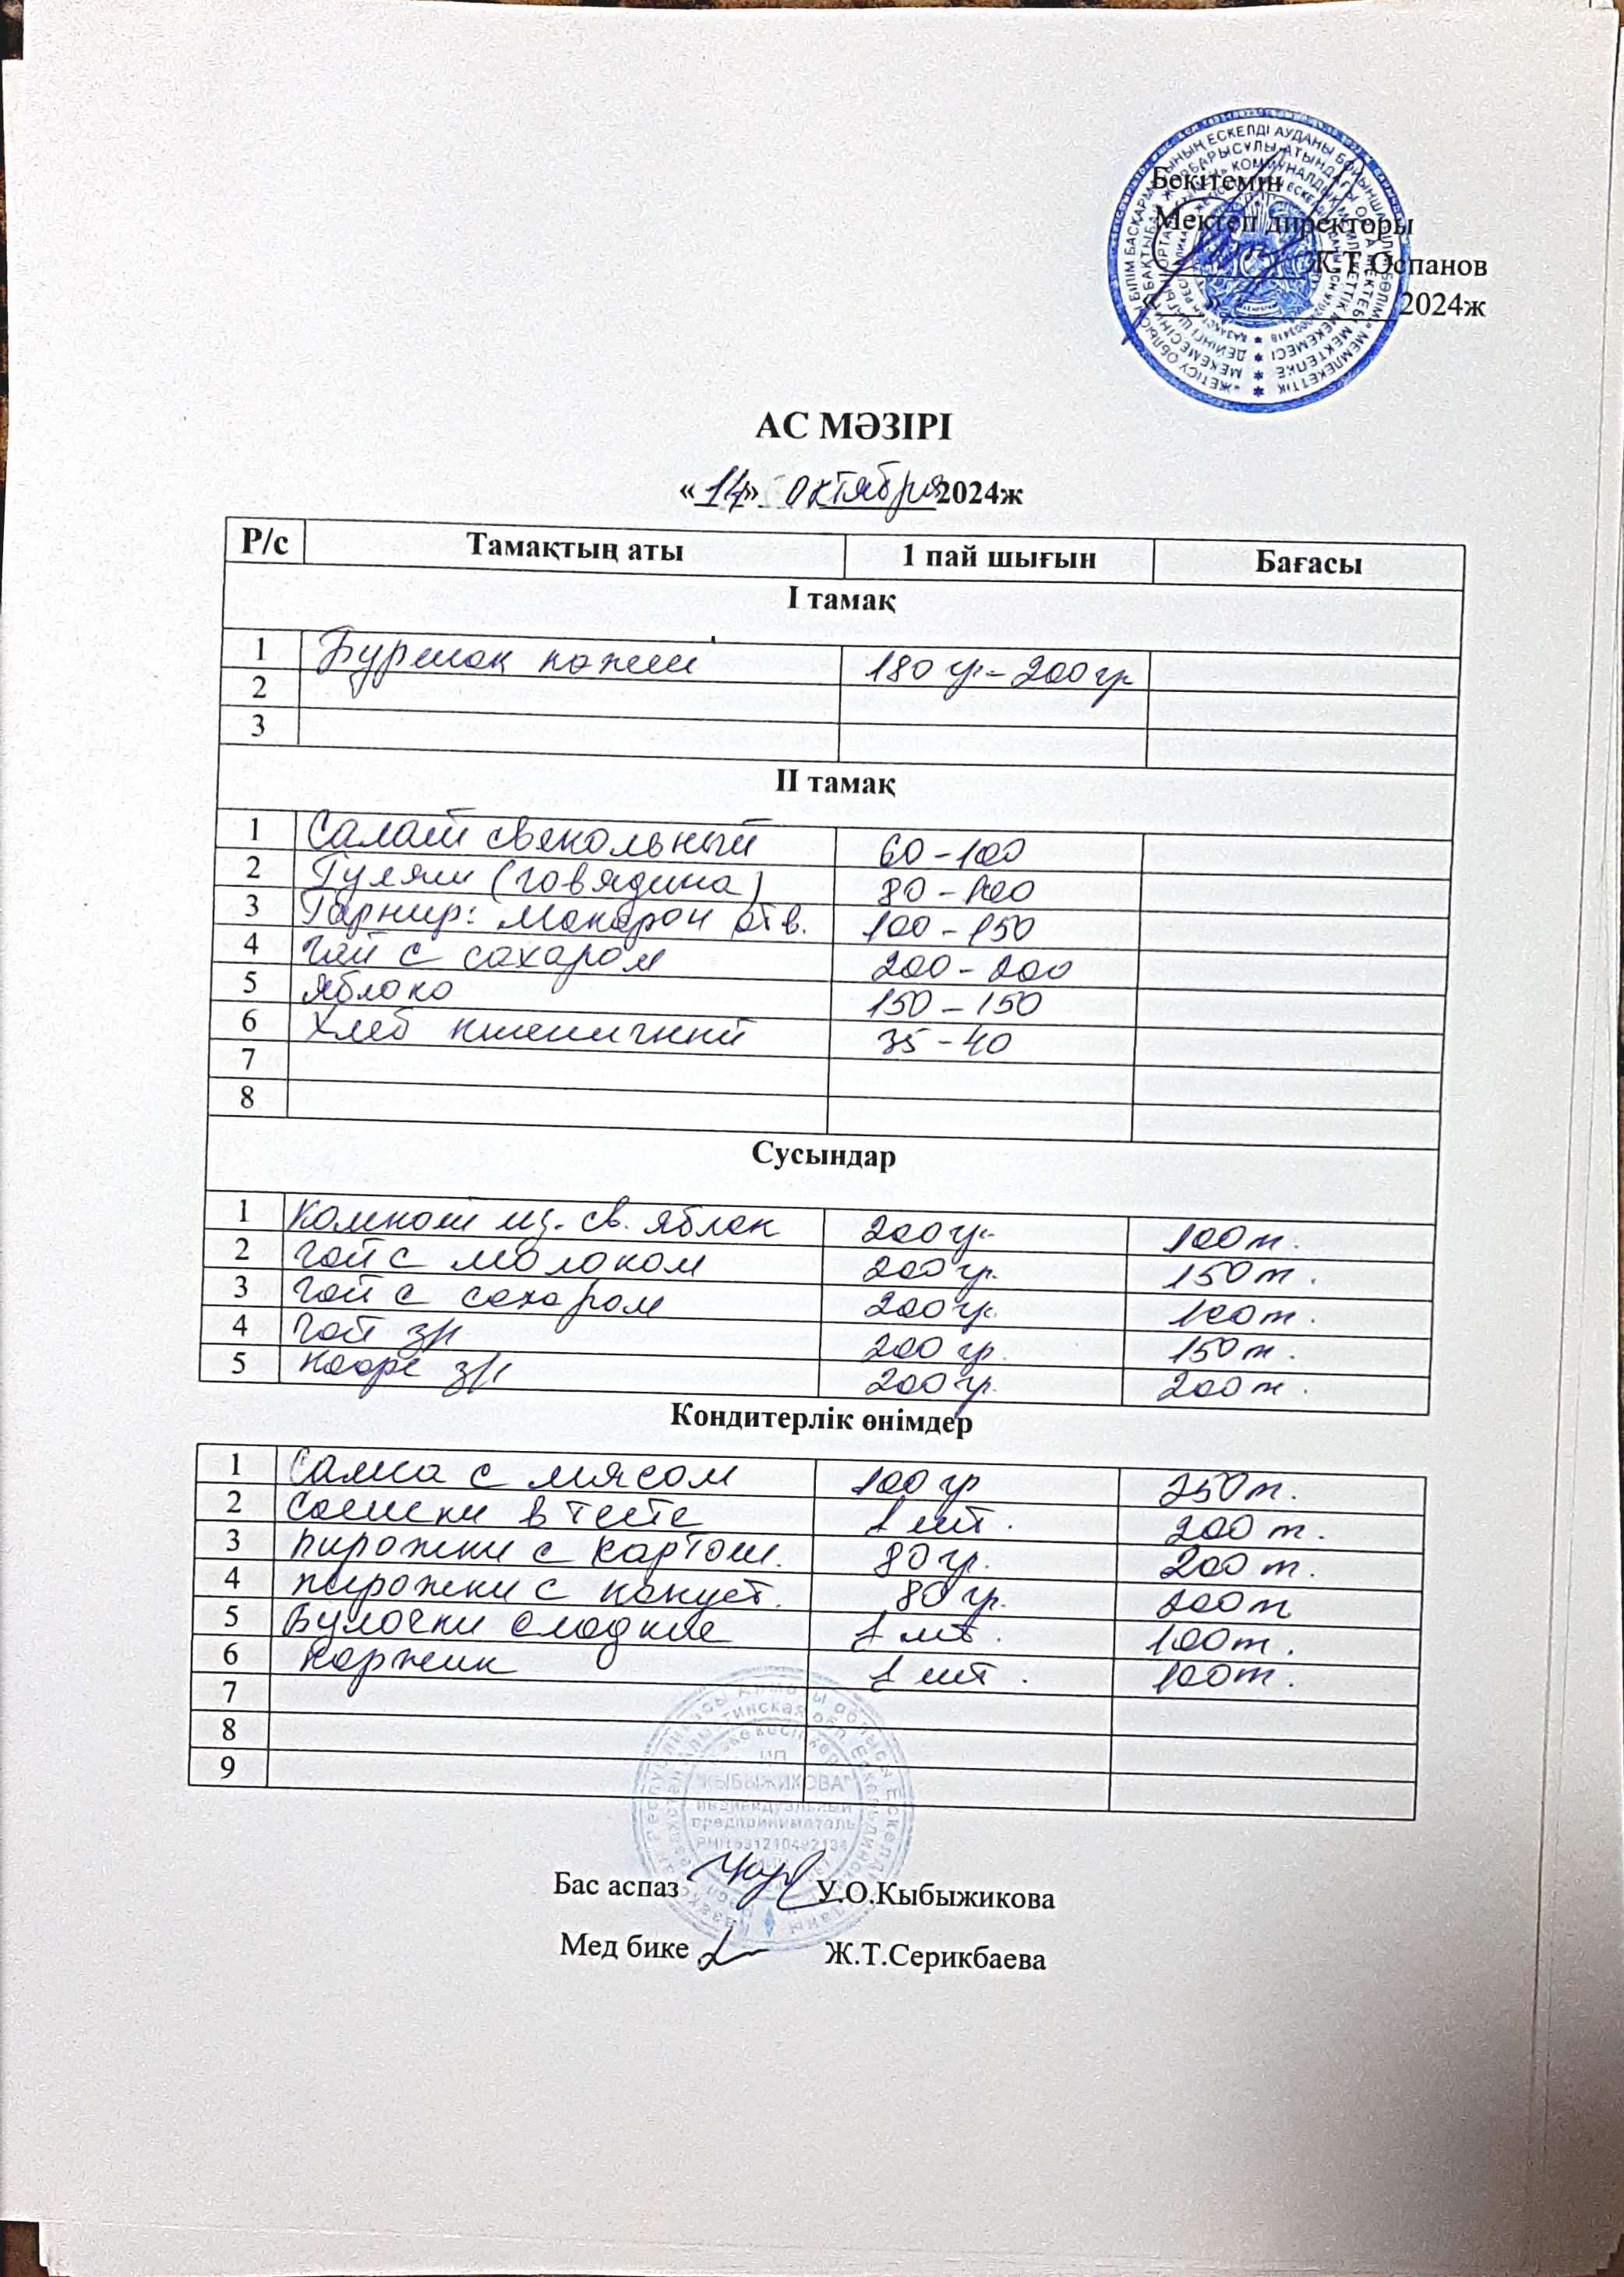 Бекітемін
Мектеп директоры
Ж.Т.Оспанов
«___»____________2024ж
АС МӘЗІРІ
«14» октября 2024ж
Р/с Тамақтың аты 1 пай шығын Бағасы
І тамақ
1 Бұршақ көже 180 гр-200гр
2
3
ІІ тамақ
1 Салат свекольный 60-100
2 Гуляш (говядина) 80-100
3 Гарнир: макарон отв. 100-150
4 Чай с сахаром 200-200
5 Яблоко 150-150
6 Хлеб пшеничный 35-40
7
8
Сусындар
1 Компот из. св. яблок 200гр. 100т.
2 Чай с молоком 200гр. 150т.
3 Чай с сахаром 200гр. 100т.
4 Чай 3/1 200 гр. 150т.
5 Кофе 3/1 200гр. 200т.
Кондитерлік өнімдер
1 Самса с мясом 100 гр 250т.
2 Сосиски в тесте 1 шт. 200 т.
3 Пирожки с картош. 80гр. 200 т.
4 Пирожки с капуст. 80 гр. 200т
5 Булочки сладкие 1 шт. 100т.
6 Коржик 1 шт. 100т.
7
8
9
ИП
"КЫБЫЖИКОВА"
индивидуальный
предприниматель
Бас аспаз У.О.Кыбыжикова
Мед бике Ж.Т.Серикбаева